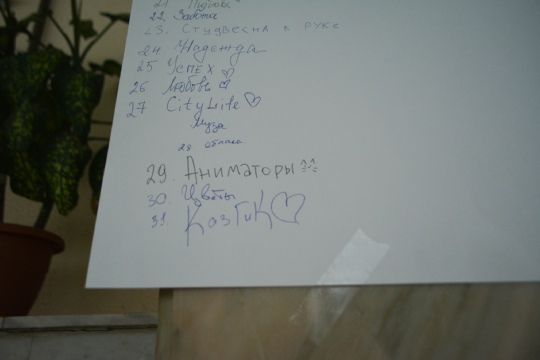 22. Забота
23. Студвесна в руке
24 Надежда
25 Успех
26 Любовь
27 CityLife
Муза
28 облака
29. Аниматоры
30. Цветы
31. КазГиК